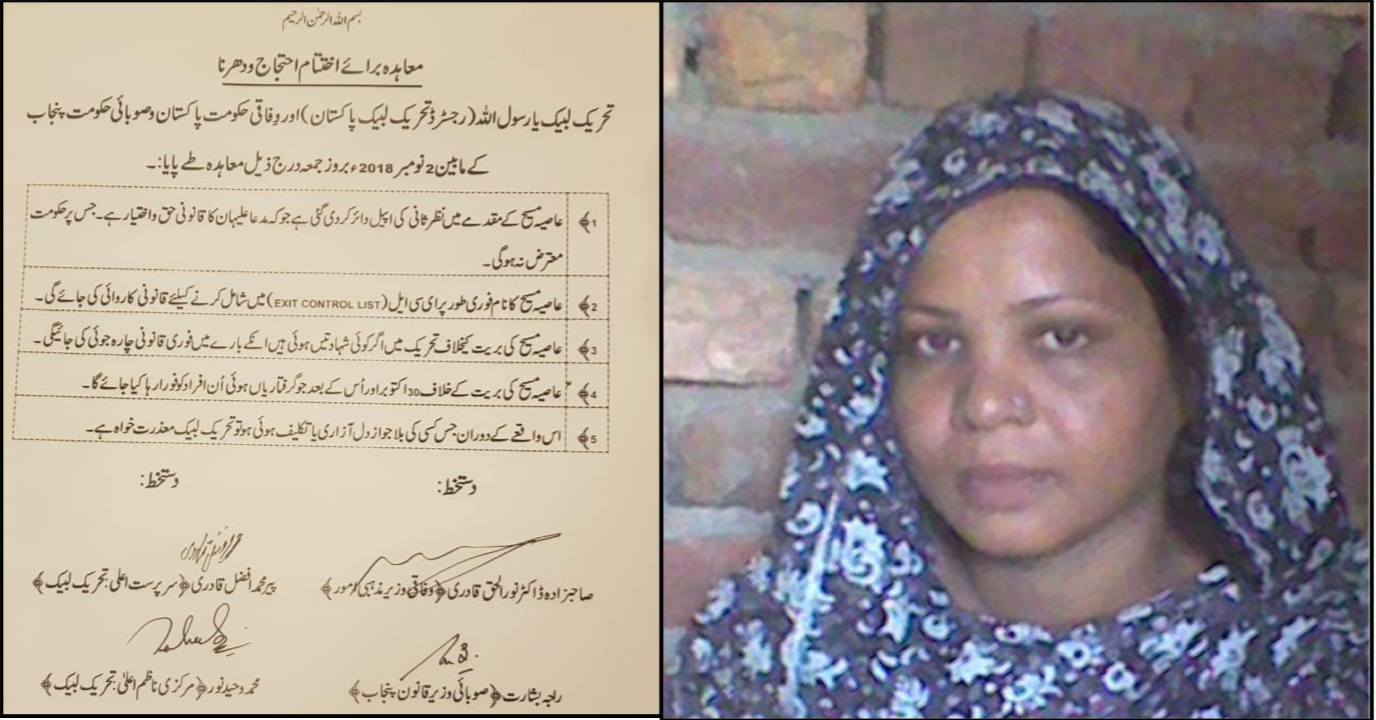 بسم اللہ الرحمٰن الرحیم
معاہدہ برائے اختتام احتجاج ودھرنا
تحریک لبیک یا رسول اللہ (رجسٹرڈ تحریک لبیک پاکستان) اور وفاقی حکومت پاکستان وصوبائی حکومت پنجاب
کے مابین 2 نومبر 2018ء بروز جمعہ درج ذیل معاہدہ طے پایا:۔
1﴾ عاصیہ مسیح کے مقدمے میں نظر ثانی کی اپیل دائر کردی گئی ہے جو کہ مدعا علیہان کا قانونی حق واختیار ہے۔ جس پر حکومت
معترض نہ ہوگی۔
2﴾ عاصیہ مسیح کا نام فوری طور پر ای سی ایل (EXIT CONTROL LIST) میں شامل کرنے کیلئے قانونی کاروائی کی جائے گی۔
3﴾ عاصیہ مسیح کی بریت کیخلاف تحریک میں اگر کوئی شہادتیں ہوئی ہیں انکے بارے میں فوری قانونی چارہ جوئی کی جائیگی۔
4﴾ عاصیہ مسیح کی بریت کے خلاف 30 اکتوبر اور اُس کے بعد جو گرفتاریاں ہوئی اُن افراد کو فورا رہا کیا جائے گا۔
5﴾ اس واقعے کے دوران جس کسی کی بلا جواز دل آزاری یا تکلیف ہوئی ہو تو تحریک لبیک معذرت خواہ ہے۔
دستخط: دستخط:
صاحبزادہ ڈاکٹر نور الحق قادری ﴿وفاقی وزیر مذہبی امور﴾ پیر محمد افضل قادری ﴿سرپرست اعلیٰ: تحریک لبیک﴾
راجہ بشارت ﴿صوبائی وزیر قانون پنجاب﴾ محمد وحید نور ﴿مرکزی ناظم اعلیٰ: تحریک لبیک﴾